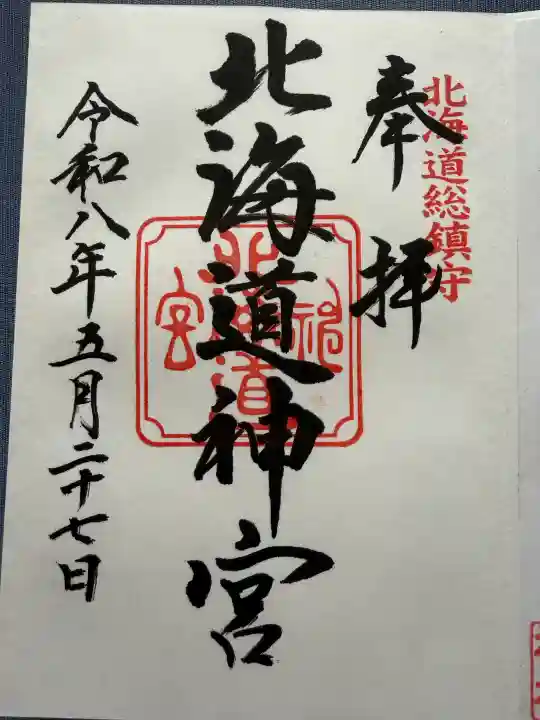 北海道総鎮守
奉拝
北海道神宮
北海道神宮
令和八年五月二十七日